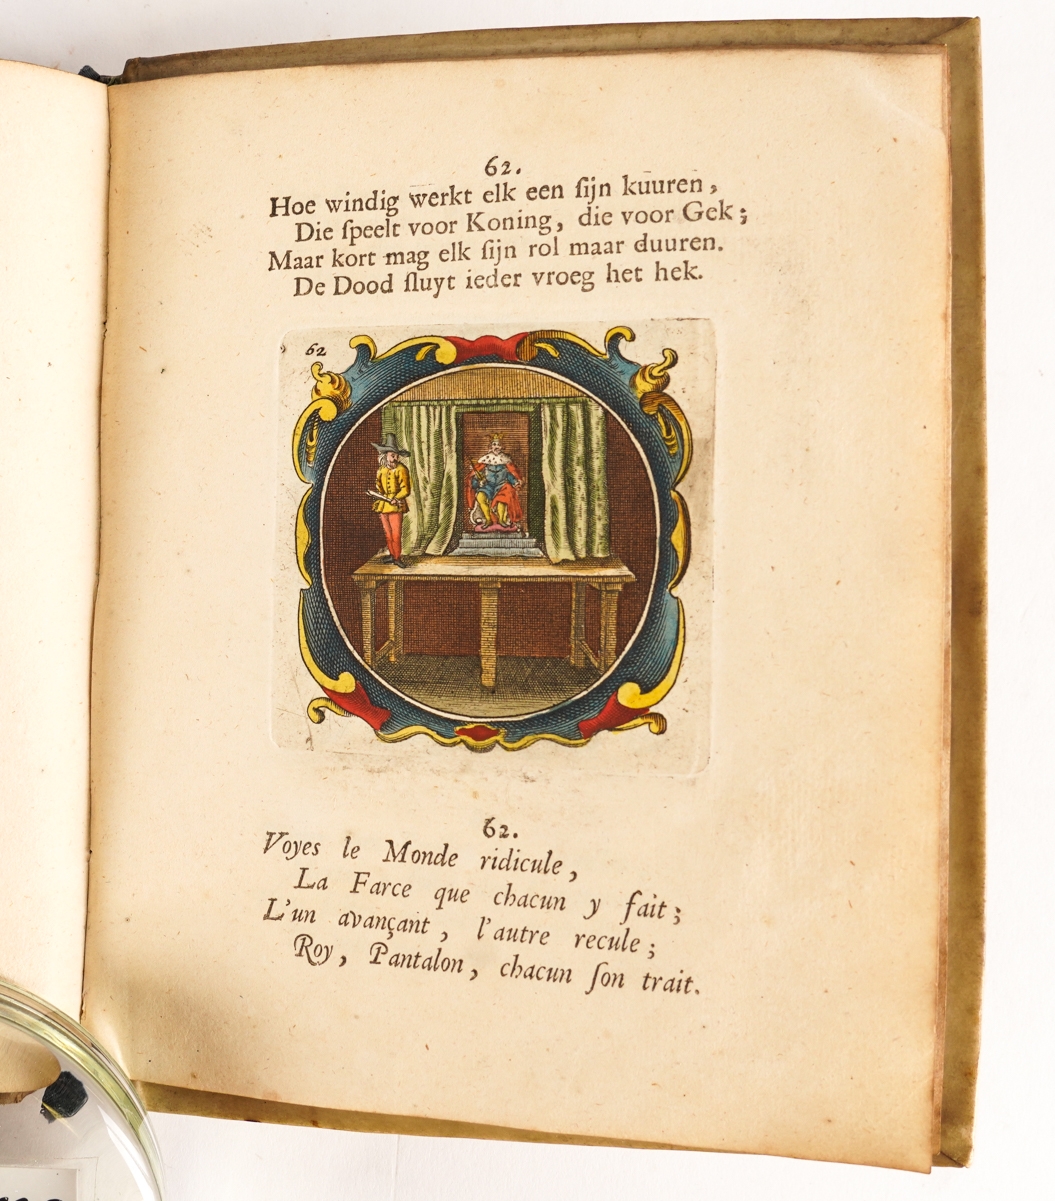 62.
Hoe windig werkt elk een ſijn kuuren,
Die ſpeelt voor Koning, die voor Gek;
Maar kort mag elk ſijn rol maar duuren.
De Dood ſluyt ieder vroeg het hek.
62
62.
Voyes le Monde ridicule,
La Farce que chacun y fait;
L'un avançant, l'autre recule;
Roy, Pantalon, chacun ſon trait.